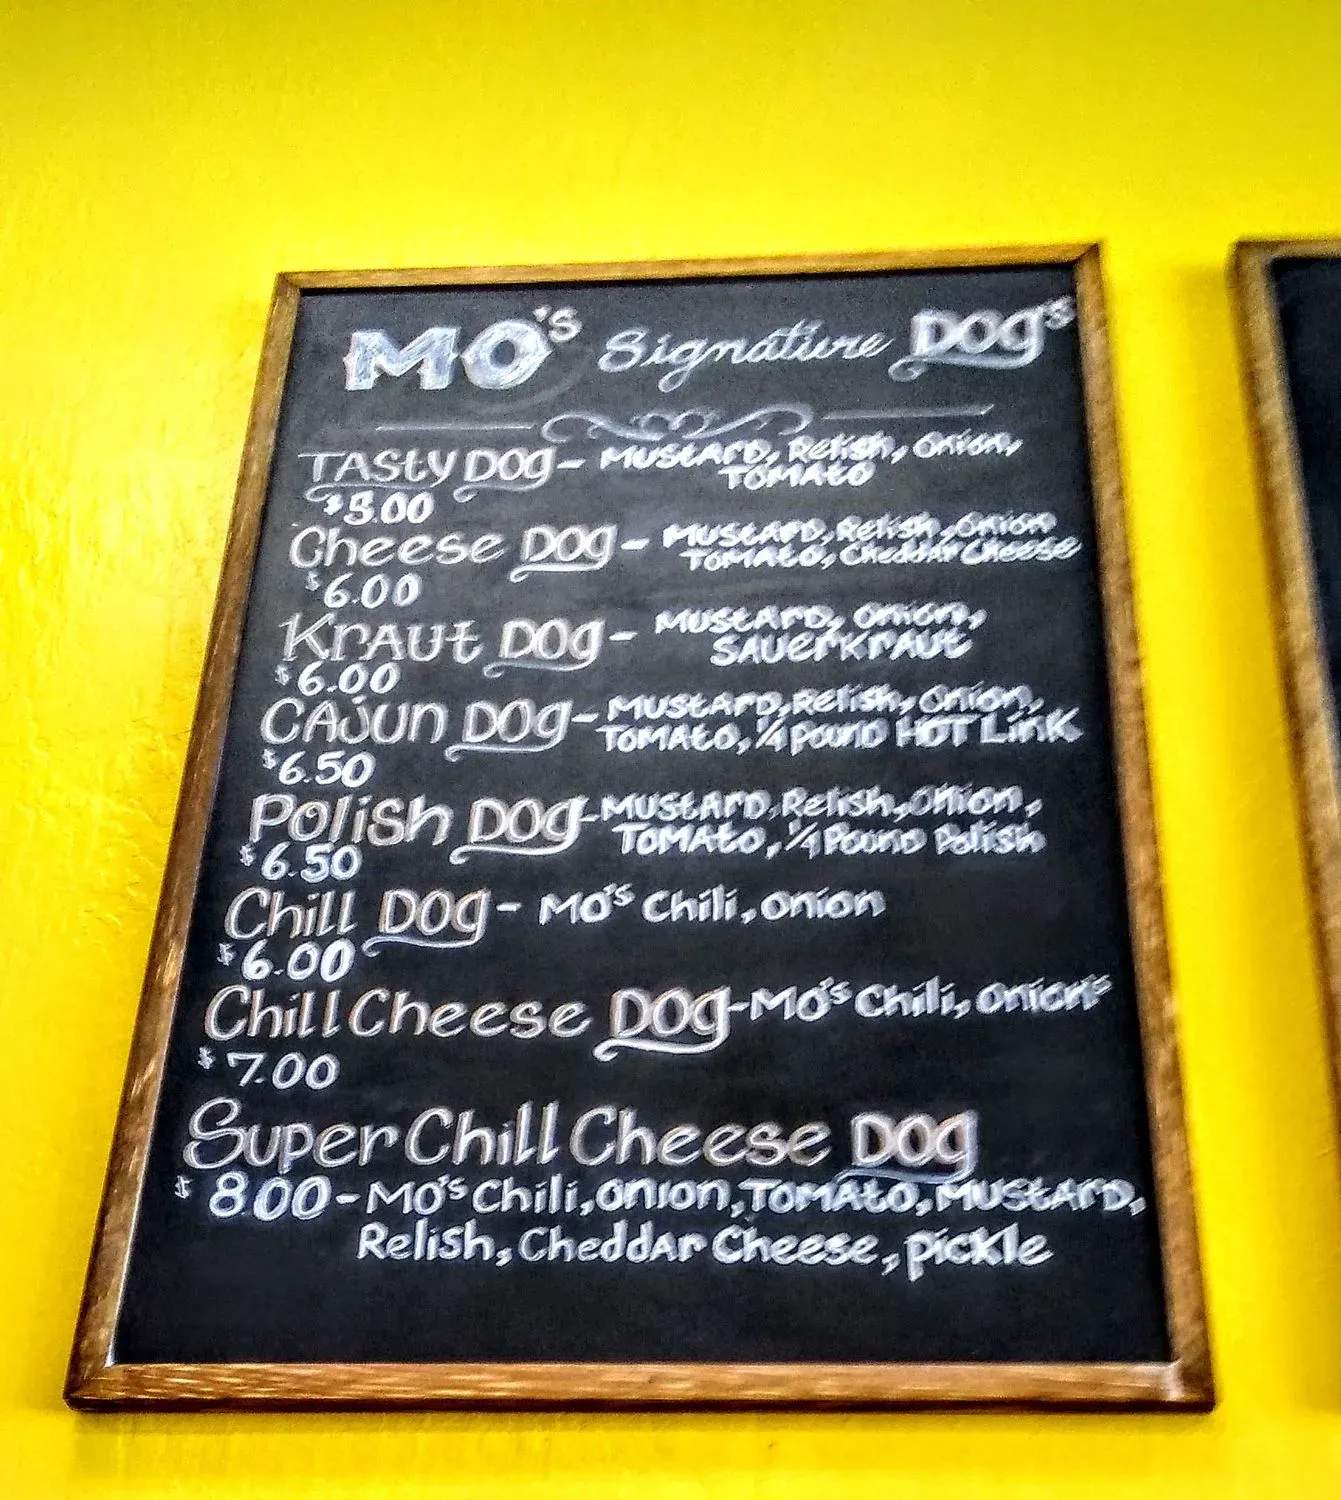 MO's Signature DOg's
TAStY DOg - MUStARD, Relish, Onion,
TOMATO
$5.00
Cheese DOg - MUStARD, Relish, Onion
TOMAtO, Cheddar Cheese
$6.00
KrAUt DOg - MUStARD, Onion,
SAUerKrAUt
$6.00
CAjUn DOg - MUStARD, Relish, Onion,
TOMAtO, 1/4 pounD HOT LinK
$6.50
POlish DOg - MUStArD, Relish, Onion,
TOMAtO, 1/4 Pound Polish
$6.50
Chill DOg - MO's Chili, onion
$6.00
Chill Cheese DOg - MO's Chili, onion's
$7.00
Super Chill Cheese DOg
$8.00 - MO's Chili, onion, TOMAtO, MUStArD,
Relish, CheddAr Cheese, pickle